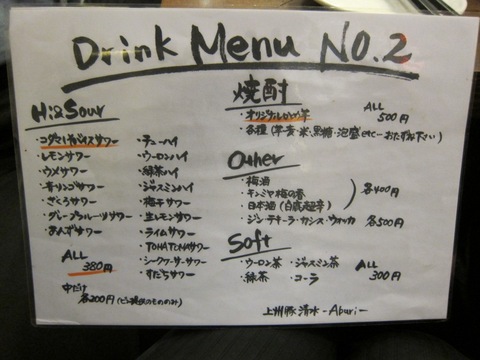 Drink Menu NO.2
Hi&Sour
・コダマバイスサワー
・レモンサワー
・ウメサワー
・青リンゴサワー
・ざくろサワー
・グレープフルーツサワー
・あんずサワー
ALL
380円
中だけ
各200円(ビン提供のもののみ)
・チューハイ
・ウーロンハイ
・緑茶ハイ
・ジャスミンハイ
・梅干サワー
・生レモンサワー
・ライムサワー
・TOMATOMAサワー
・シークワーサーサワー
・すだちサワー
焼酎
・オリジナル
ALL
500円
・各種(芋・麦・米・黒糖・泡盛etc…おたずね下さい)
Other
・梅酒
・キンミヤ梅の香
・日本酒
各400円
・ジン・テキーラ・カシス・ウォッカ 各500円
Soft
・ウーロン茶 ・ジャスミン茶
・緑茶 ・コーラ
ALL
300円
上州豚清水 -Aburi-